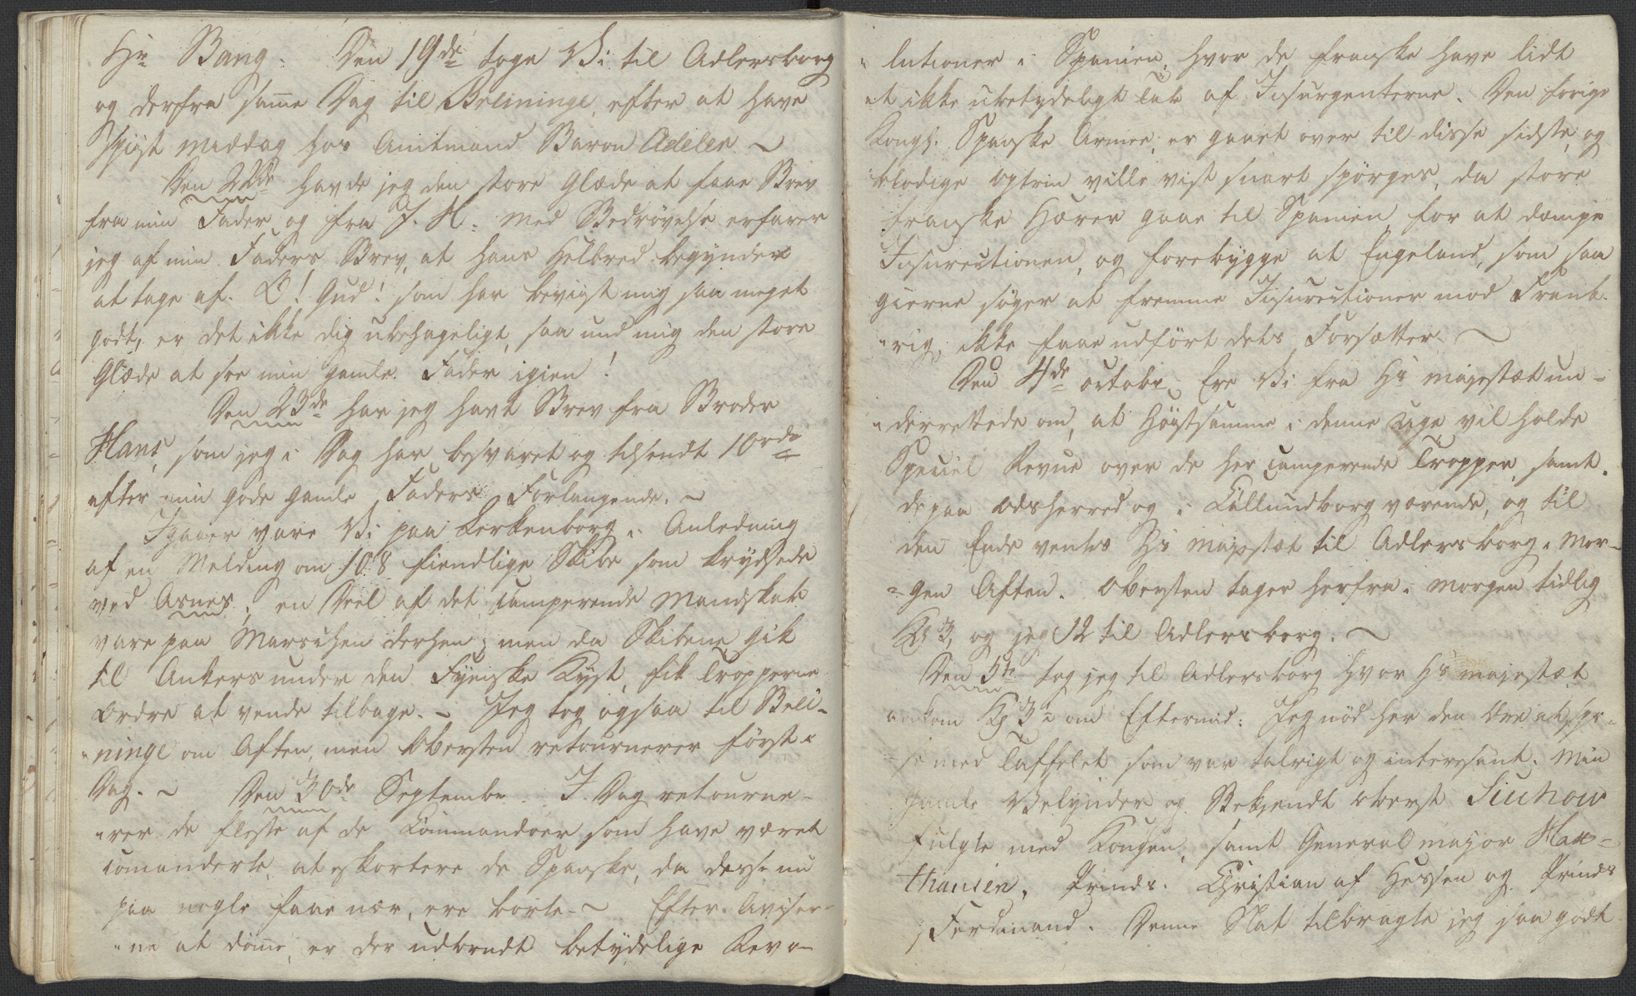 Hr Bang. Den 19de toge Vi til Adlersborg
og derfra samme Dag til Breininge, efter at have
spiist Middag hos Amtmand Baron Adeler ~
Den 22de havde jeg den store Glæde at faae Brev
fra min Fader og fra J. H: med Bedrøvelse erfarer
jeg af min Faders Brev, at hans Helbred begynder
at tage af. O! Gud! som har beviist mig saa meget
godt, er det ikke dig ubehageligt, saa und mig den store
Glæde at see min gamle Fader igien!
Den 23de har jeg havt Brev fra Broder
Hans, som jeg i Dag har besvaret og tilsendt 10 rdr
efter min gode gamle Faders Forlangende. ~
Igaaer vare Vi paa Lerkenborg i Anledning
af en Melding om 108 fiendlige Skibe som krydsede
ved Asnes; en Deel af det camperende Mandskab
vare paa Marschen derhen; men da Skibene gik
til Ankers under den Fyenske Kyst, fik Tropperne
Ordre at vende tilbage. ~ Jeg tog ogsaa til Brei-
ninge om Aften, men Obersten retournerer først i
Dag. ~ Den 30de Septembr. I Dag retourne-
rer de fleste af de Commandoer som have været
comanderte, at eskortere de Spanske, da disse nu
paa nogle faae nær, ere borte. ~ Efter Aviser-
ne at dömme, er der udbrudt betydelige Revo-
lutioner i Spanien, hvor de franske have lidt
et ikke ubetydeligt Tab af Insurgenterne. Den forige
Kongl. Spanske Armee, er gaaet over til disse sidste, og
blodige Optrin ville vist snart spörges, da store
franske Hærer gaae til Spanien for at dæmpe
Insurectionen, og forebygge at Engeland, som saa
gierne söger at fremme Insurectioner mod Frank-
rig, ikke faae udfört dets Forsætter. ~
Den 4de octobr. Ere Vi fra Hs Majestæt un-
derrettede om, at Höystsamme i denne Uge vil holde
Speciel Revue over de her camperende Tropper, samt
de paa Odsherred og i Callundborg værende, og til
den Ende ventes Hs Majestæt til Adlersborg i Mor-
gen Aften. Obersten tager herfra i Morgen tidlig
Kl 3, og jeg 12 til Adlersborg. ~
Den 5te tog jeg til Adlersborg hvor Hs Majestæt
ankom Kl 3 om Eftermid: Jeg nöd her den Ære at spi-
se med Taffelet som var talrigt og interesant. Min
gamle Velynder og Bekjendt Oberst Suchow
fulgte med Kongen, samt General major Hax-
thausen, Prinds Christian af Hessen og Prinds
Ferdinand. Denne Nat tilbragte jeg saa godt